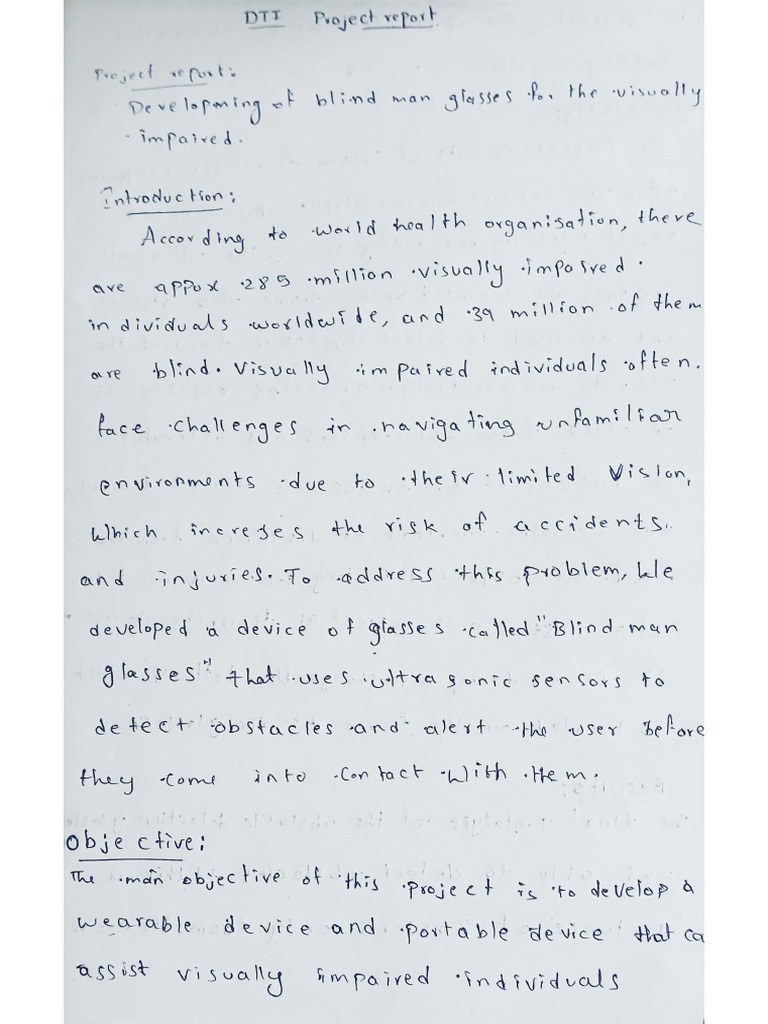 DTI Project report
Project report:
Developming of blind man glasses for the visually
impaired.
Introduction:
According to world health organisation, there
are appox 285 million visually impaired
individuals worldwide, and 39 million of them
are blind. Visually impaired individuals often
face challenges in navigating unfamiliar
environments due to their limited Vision,
Which increses the risk of accidents
and injuries. To address this problem, We
developed a device of glasses called "Blind man
glasses" that uses ultra sonic sensors to
detect obstacles and alert the user before
they come into contact With them.
Objective:
The man objective of this project is to develop a
wearable device and portable device that ca
assist visually impaired individuals